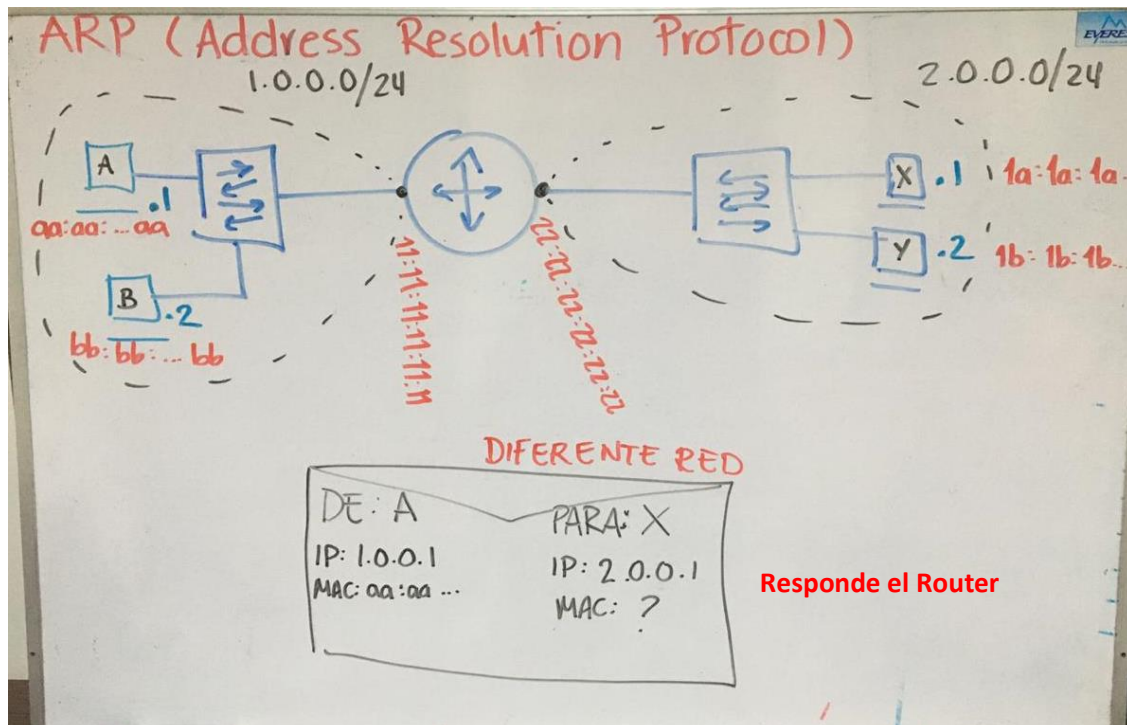 ARP (Address Resolution Protocol)
1.0.0.0/24
2.0.0.0/24
A
.1
aa:aa:...aa
B
.2
bb:bb:...bb
11:11:11:11:11:11
22:22:22:22:22:22
X .1 1a:1a:1a.
Y .2 1b:1b:1b...
DIFERENTE RED
DE: A
IP: 1.0.0.1
MAC: aa:aa ...
PARA: X
IP: 2.0.0.1
MAC: ?
Responde el Router